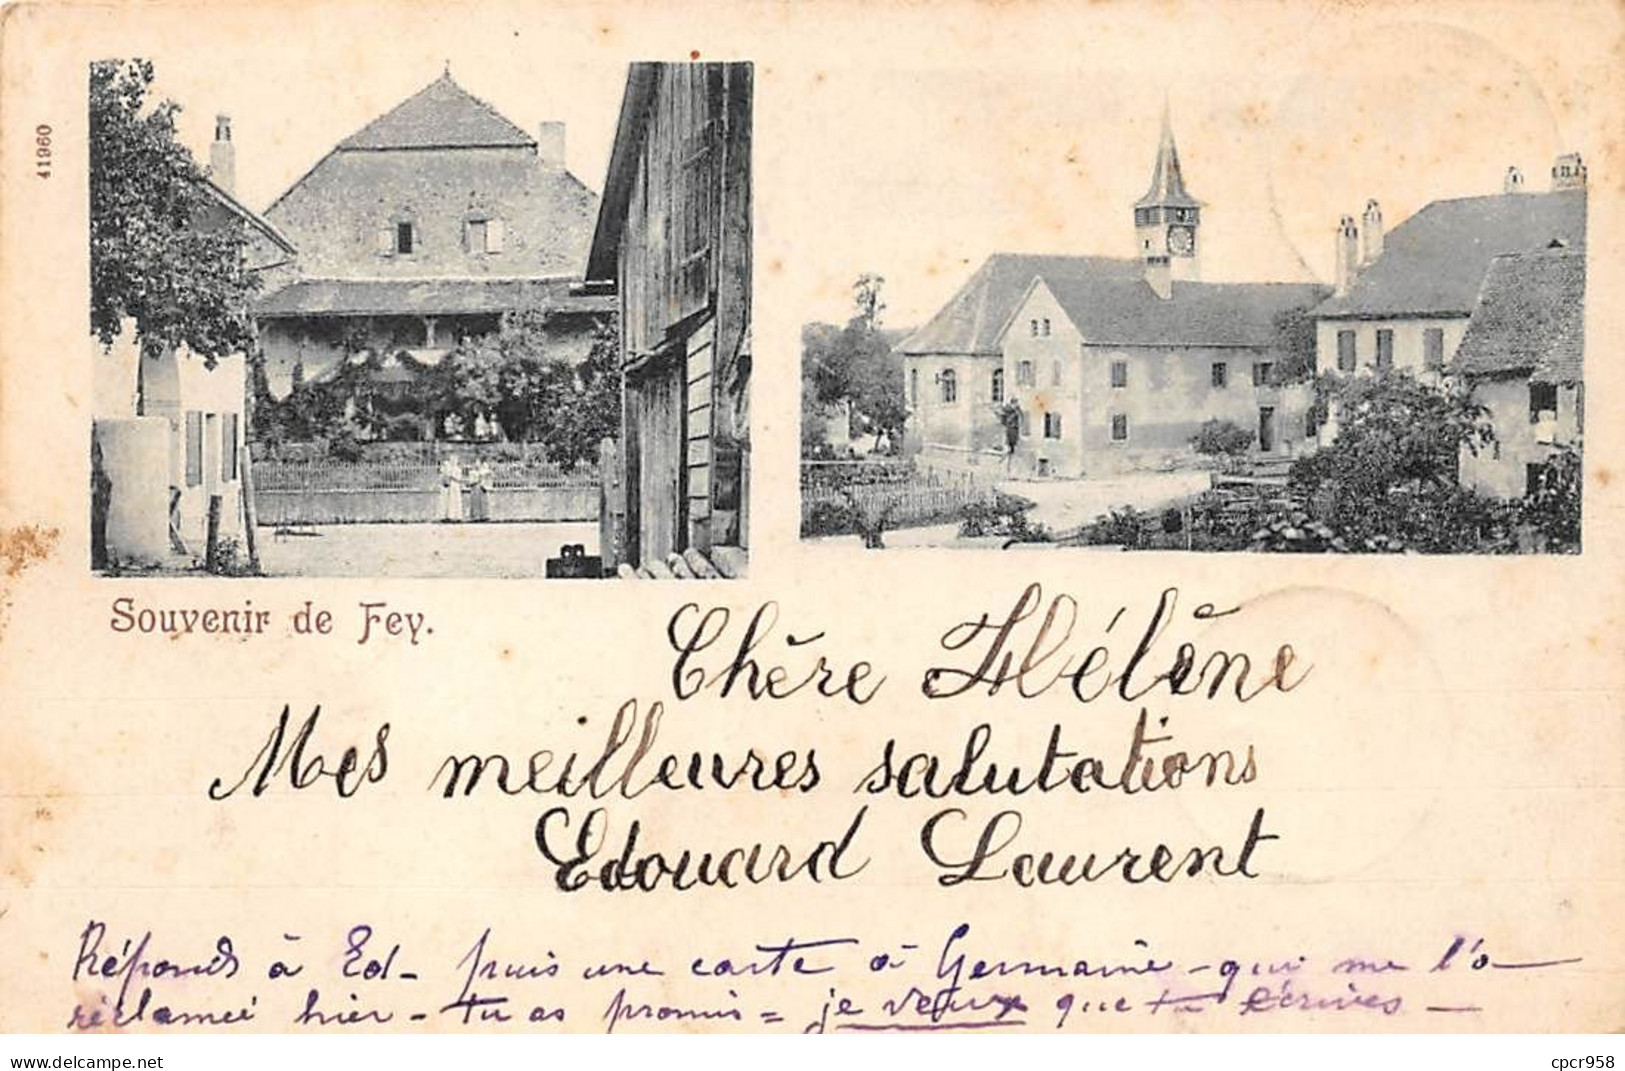 41960
Souvenir de Fey.
Chère Hélène
Mes meilleures salutations
Edouard Laurent
Réponds à Ed - puis une carte à Germaine - qui me l'a
réclamée hier - tu as promis = je veux que tu écrives -
www.delcampe.net
cpcr958